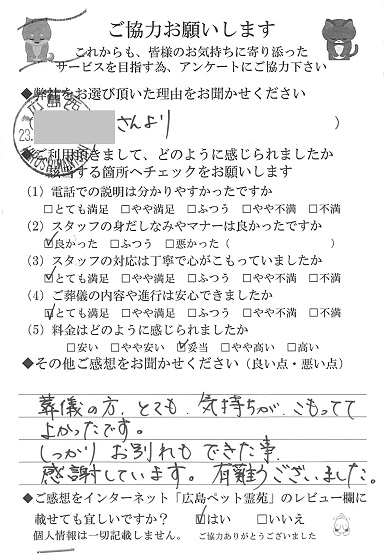 ご協力お願いします
これからも、皆様のお気持ちに寄り添った
サービスを目指す為、アンケートにご協力下さい
◆弊社をお選び頂いた理由をお聞かせください
さんより )
◆ご利用頂きまして、どのように感じられましたか
該当する箇所へチェックをお願いします
(1) 電話での説明は分かりやすかったですか
□とても満足 □やや満足 □ふつう □やや不満 □不満
(2) スタッフの身だしなみやマナーは良かったですか
☑良かった □ふつう □悪かった (
(3) スタッフの対応は丁寧で心がこもっていましたか
☑とても満足 □やや満足 □ふつう □やや不満 □不満
(4) ご葬儀の内容や進行は安心できましたか
☑とても満足 □やや満足 □ふつう □やや不満 □不満
(5) 料金はどのように感じられましたか
□安い □やや安い ☑妥当 □やや高い □高い
◆その他ご感想をお聞かせください (良い点・悪い点)
葬儀の方、とても、気持ちが、こもってて
よかったです。
しっかりお別れもできた事、
感謝しています。有難うございました。
◆ご感想をインターネット「広島ペット霊苑」のレビュー欄に
載せても宜しいですか? ☑はい □いいえ
個人情報は一切記載しません。 ご協力ありがとうございました